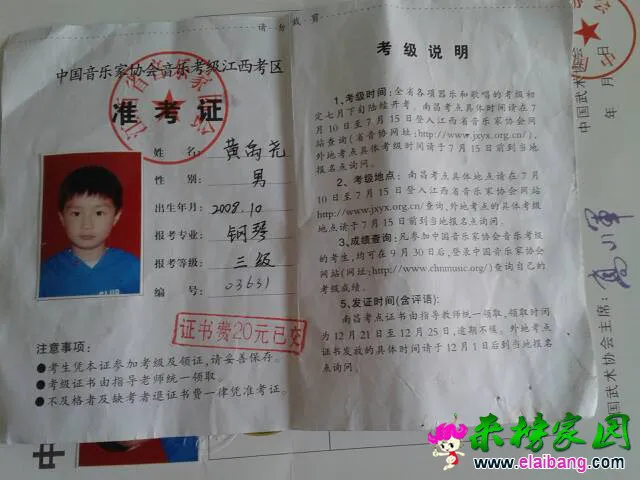 请勿裁剪
中国音乐家协会音乐考级江西考区
准考证
姓名: 黄禹尧
性别: 男
出生年月: 2008.10
报考专业: 钢琴
报考等级: 三级
编号: 03631
证书费20元已交
注意事项:
●考生凭本证参加考级及领证,请妥善保存。
●考级证书由指导老师统一领取
●不及格者及缺考者退证书费一律凭准考证。
考级说明
1、考级时间:全省各项器乐和歌唱的考级初
定七月下旬陆续开考,南昌考点具体时间请在7
月10日至7月15日登入江西省音乐家协会网
站查询(省音协网址:http://www.jxyx.org.cn/),
外地考点具体考级时间请于7月15日前到当地
报名点询问。
2、考级地点:南昌考点具体地点请在7月10
日至7月15日登入江西省音乐家协会网站
http://www.jxyx.org.cn/查询,外地考点的具体考级
地点请于7月15日前到当地报名点询问。
3、成绩查询:凡参加中国音乐家协会音乐考级
的考生,均可在9月30日后,登录中国音乐家协会
网站(网址:http://www.chnmusic.org/)查询自己的
考级成绩。
5、发证时间(含评语):
南昌考点证书由指导教师统一领取,领取时间
为12月21日至12月25日,逾期不候。外地考点
证书发放的具体时间请于12月1日后到当地报名
点询问。
中国武术协会
年 月 日
国武术协会主席:
来榜家园
www.elaibang.com